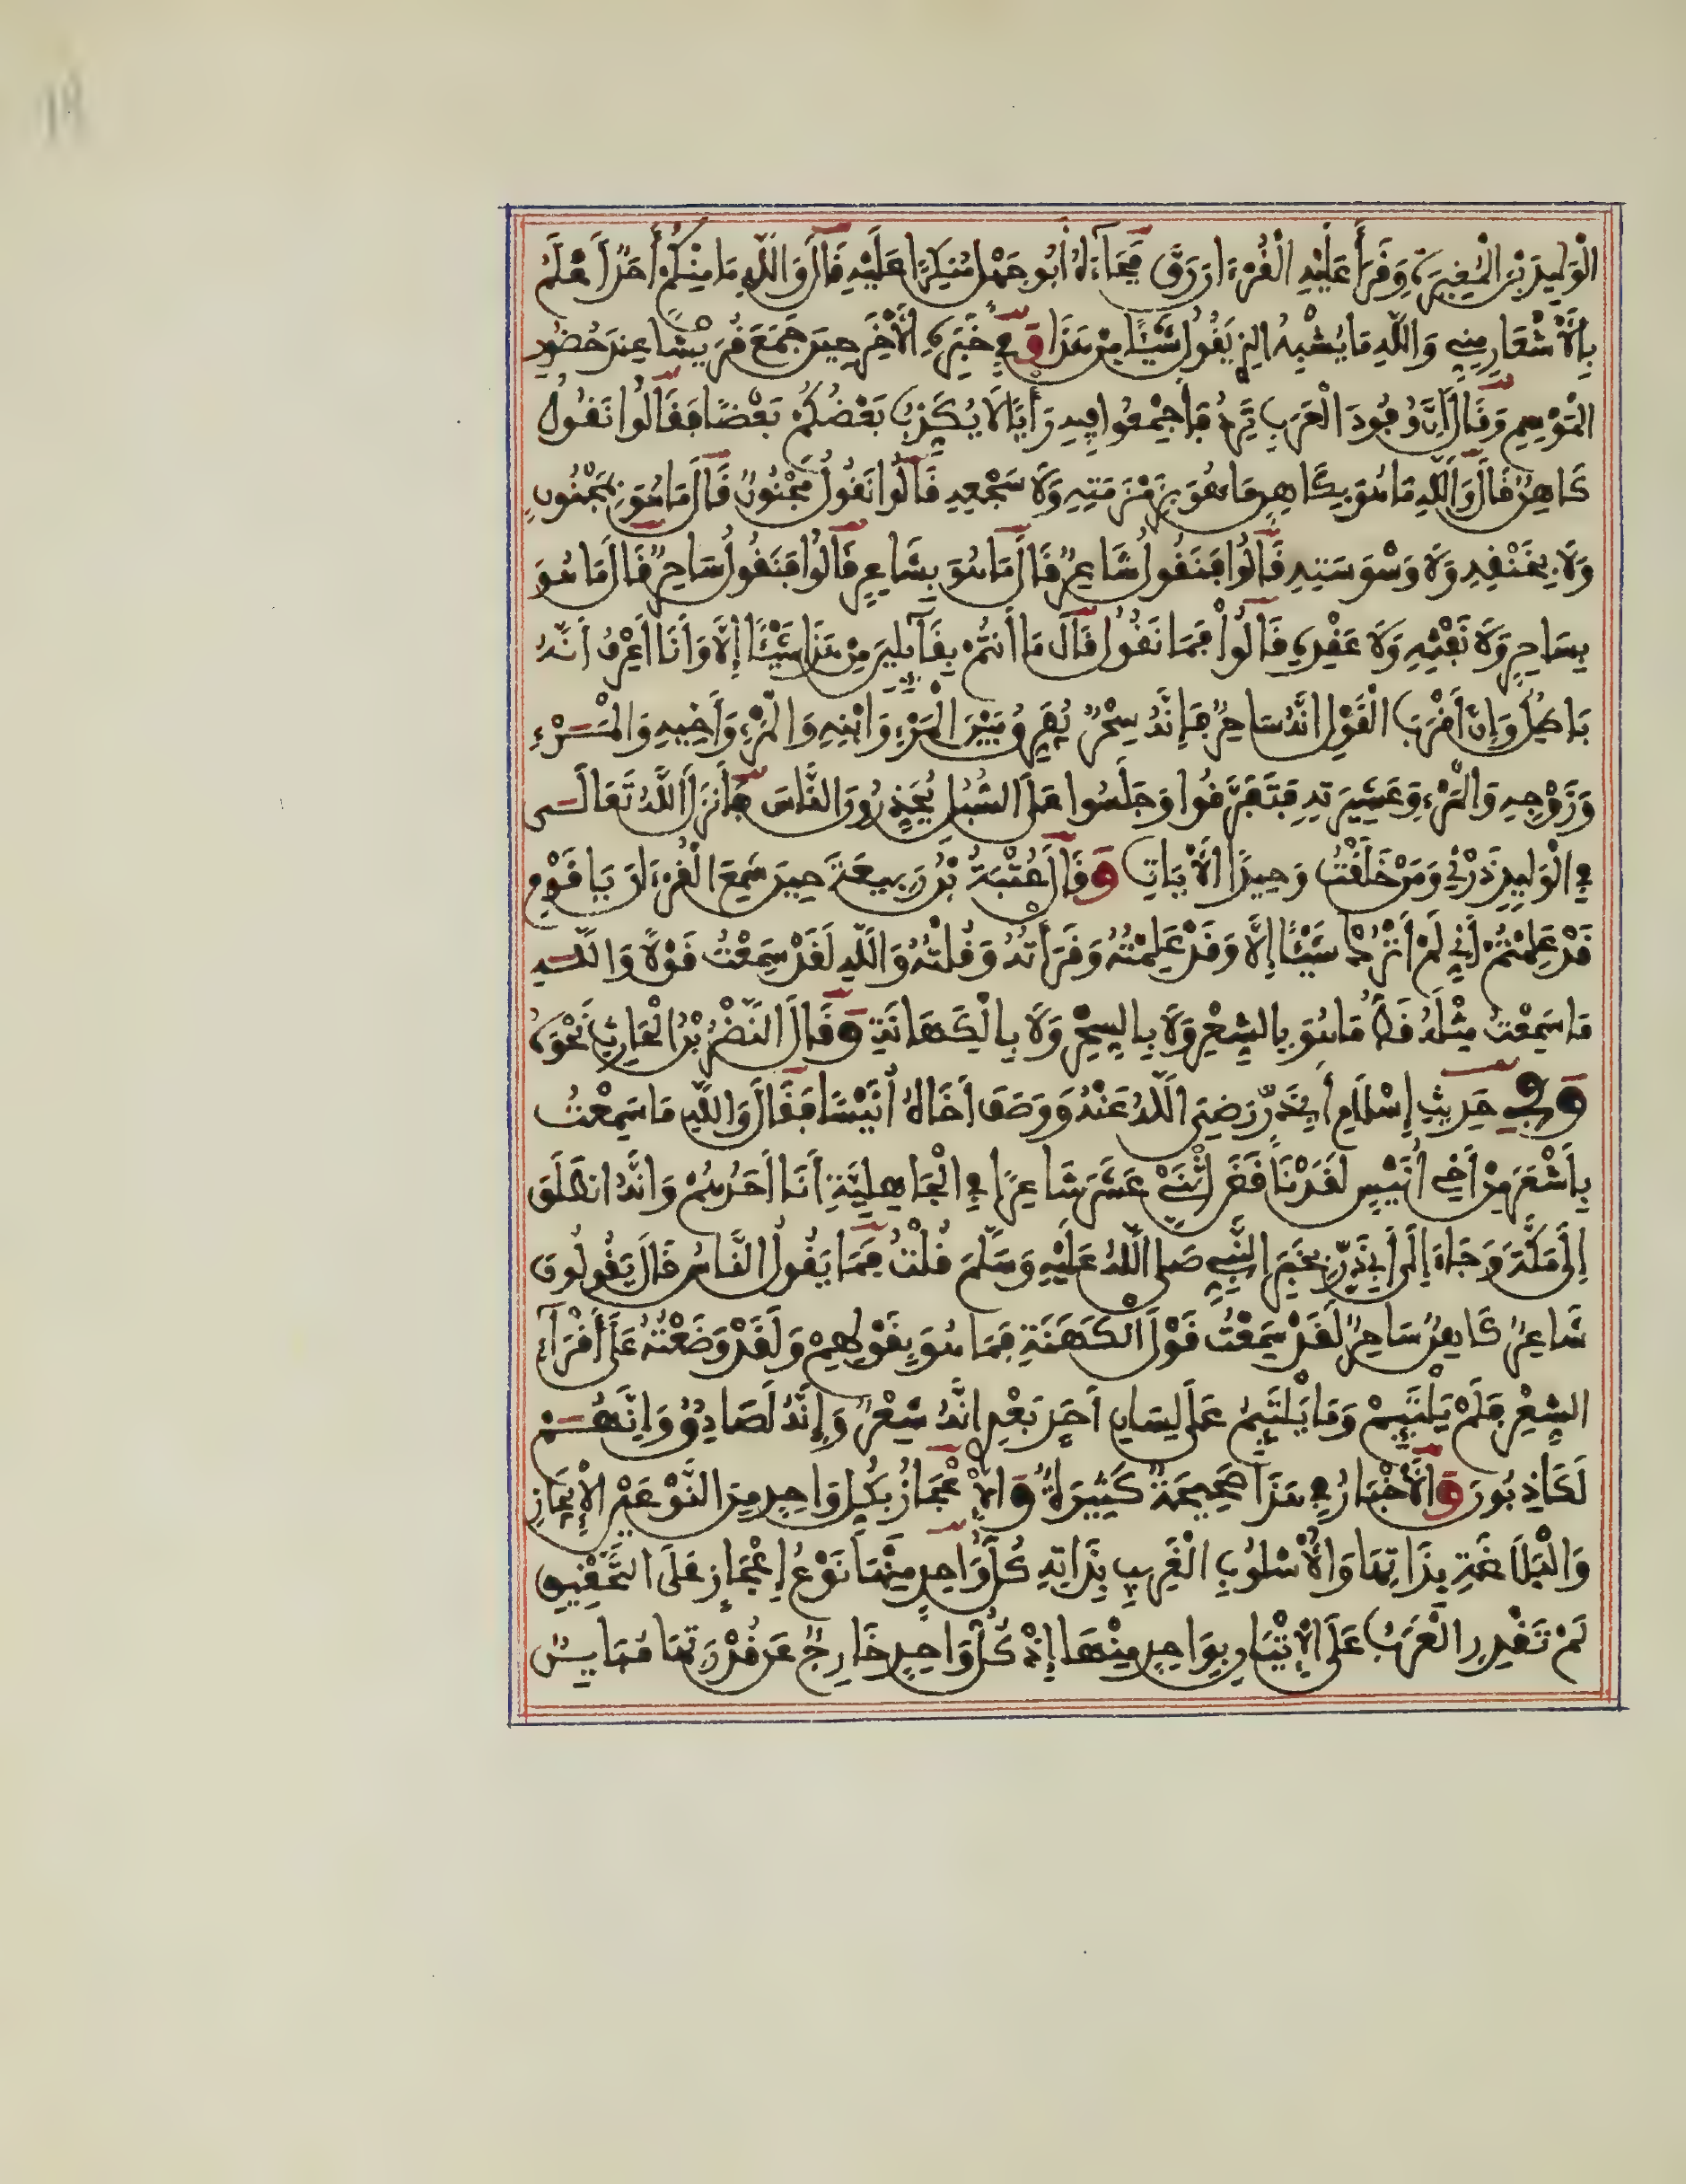 الْوَلِيدَ بْنَ الْمُغِيرَةِ وَقَرَأَ عَلَيْهِ الْقُرْءَانَ رَقَّ فَجَاءَهُ أَبُو جَهْلٍ مُنْكِرًا عَلَيْهِ قَالَ وَاللَّهِ مَا مِنْكُمْ أَحَدٌ أَعْلَمُ
بِالْأَشْعَارِ مِنِّي وَاللَّهِ مَا يُشْبِهُ الذِي يَقُولُ شَيْئًا مِنْ هَذَا وَفِي خَبَرِهِ الْأَخَرِ حِينَ جَمَعَ قُرَيْشًا عِنْدَ حُضُورِ
الْمَوْسِمِ وَقَالَ إِنَّ وُفُودَ الْعَرَبِ تَرِدُ فَأَجْمِعُوا فِيهِ رَأْيًا لَا يُكَذِّبُ بَعْضُكُمْ بَعْضًا فَقَالُوا نَقُولُ
كَاهِنٌ قَالَ وَاللَّهِ مَا هُوَ بِكَاهِنٍ مَا هُوَ بِزَمْزَمَتِهِ وَلَا سَجْعِهِ قَالُوا نَقُولُ مَجْنُونٌ قَالَ مَا هُوَ بِمَجْنُونٍ
وَلَا بِخَنْقِهِ وَلَا وَسْوَسَتِهِ قَالُوا فَنَقُولُ شَاعِرٌ قَالَ مَا هُوَ بِشَاعِرٍ قَالُوا فَنَقُولُ سَاحِرٌ قَالَ مَا هُوَ
بِسَاحِرٍ وَلَا نَفْثِهِ وَلَا عَقْدِهِ قَالُوا فَمَا نَقُولُ قَالَ مَا أَنْتُمْ بِقَائِلِينَ مِنْ هَذَا شَيْئًا إِلَّا وَأَنَا أَعْرِفُ أَنَّهُ
بَاطِلٌ وَإِنَّ أَقْرَبَ الْقَوْلِ أَنَّهُ سَاحِرٌ فَإِنَّهُ سِحْرٌ يُفَرِّقُ بَيْنَ الْمَرْءِ وَابْنِهِ وَالْمَرْءِ وَأَخِيهِ وَالْمَرْءِ
وَزَوْجِهِ وَالْمَرْءِ وَعَشِيرَتِهِ فَتَفَرَّقُوا وَجَلَسُوا عَلَى السُّبُلِ يُحَذِّرُونَ النَّاسَ فَأَنْزَلَ اللَّهُ تَعَالَى
فِي الْوَلِيدِ ذَرْنِي وَمَنْ خَلَقْتُ وَحِيدًا الْآيَاتِ وَقَالَ عُتْبَةُ بْنُ رَبِيعَةَ حِينَ سَمِعَ الْقُرْءَانَ يَا قَوْمِ
قَدْ عَلِمْتُمْ أَنِّي لَمْ أَتْرُكْ شَيْئًا إِلَّا وَقَدْ عَلِمْتُهُ وَقَرَأْتُهُ وَقُلْتُهُ وَاللَّهِ لَقَدْ سَمِعْتُ قَوْلًا وَاللَّهِ
مَا سَمِعْتُ مِثْلَهُ قَطُّ مَا هُوَ بِالشِّعْرِ وَلَا بِالسِّحْرِ وَلَا بِالْكَهَانَةِ وَقَالَ النَّضْرُ بْنُ الْحَارِثِ نَحْوَهُ
وَفِي حَدِيثِ إِسْلَامِ أَبِي ذَرٍّ رَضِيَ اللَّهُ عَنْهُ وَوَصَفَ أَخَاهُ أُنَيْسًا فَقَالَ وَاللَّهِ مَا سَمِعْتُ
بِأَشْعَرَ مِنْ أَخِي أُنَيْسٍ لَقَدْ نَاقَضَ اثْنَيْ عَشَرَ شَاعِرًا فِي الْجَاهِلِيَّةِ أَنَا أَحَدُهُمْ وَأَنَّهُ انْطَلَقَ
إِلَى مَكَّةَ وَجَاءَ إِلَى أَبِي ذَرٍّ بِخَبَرِ النَّبِيِّ صَلَّى اللَّهُ عَلَيْهِ وَسَلَّمَ قُلْتُ فَمَا يَقُولُ النَّاسُ قَالَ يَقُولُونَ
شَاعِرٌ كَاهِنٌ سَاحِرٌ لَقَدْ سَمِعْتُ قَوْلَ الْكَهَنَةِ فَمَا هُوَ بِقَوْلِهِمْ وَلَقَدْ وَضَعْتُهُ عَلَى أَقْرَاءِ
الشِّعْرِ فَلَمْ يَلْتَئِمْ وَمَا يَلْتَئِمُ عَلَى لِسَانِ أَحَدٍ بَعْدِي أَنَّهُ شِعْرٌ وَإِنَّهُ لَصَادِقٌ وَإِنَّهُمْ
لَكَاذِبُونَ وَالْأَخْبَارُ فِي هَذَا صَحِيحَةٌ كَثِيرَةٌ وَالْإِعْجَازُ بِكُلِّ وَاحِدٍ مِنَ النَّوْعَيْنِ الْإِيجَازِ
وَالْبَلَاغَةِ بِذَاتِهَا وَالْأُسْلُوبِ الْغَرِيبِ بِذَاتِهِ كُلُّ وَاحِدٍ مِنْهُمَا نَوْعُ إِعْجَازٍ عَلَى التَّحْقِيقِ
لَمْ تَقْدِرِ الْعَرَبُ عَلَى الْإِتْيَانِ بِوَاحِدٍ مِنْهَا إِذْ كُلُّ وَاحِدٍ خَارِجٌ عَنْ قُدْرَتِهَا مُبَايِنٌ